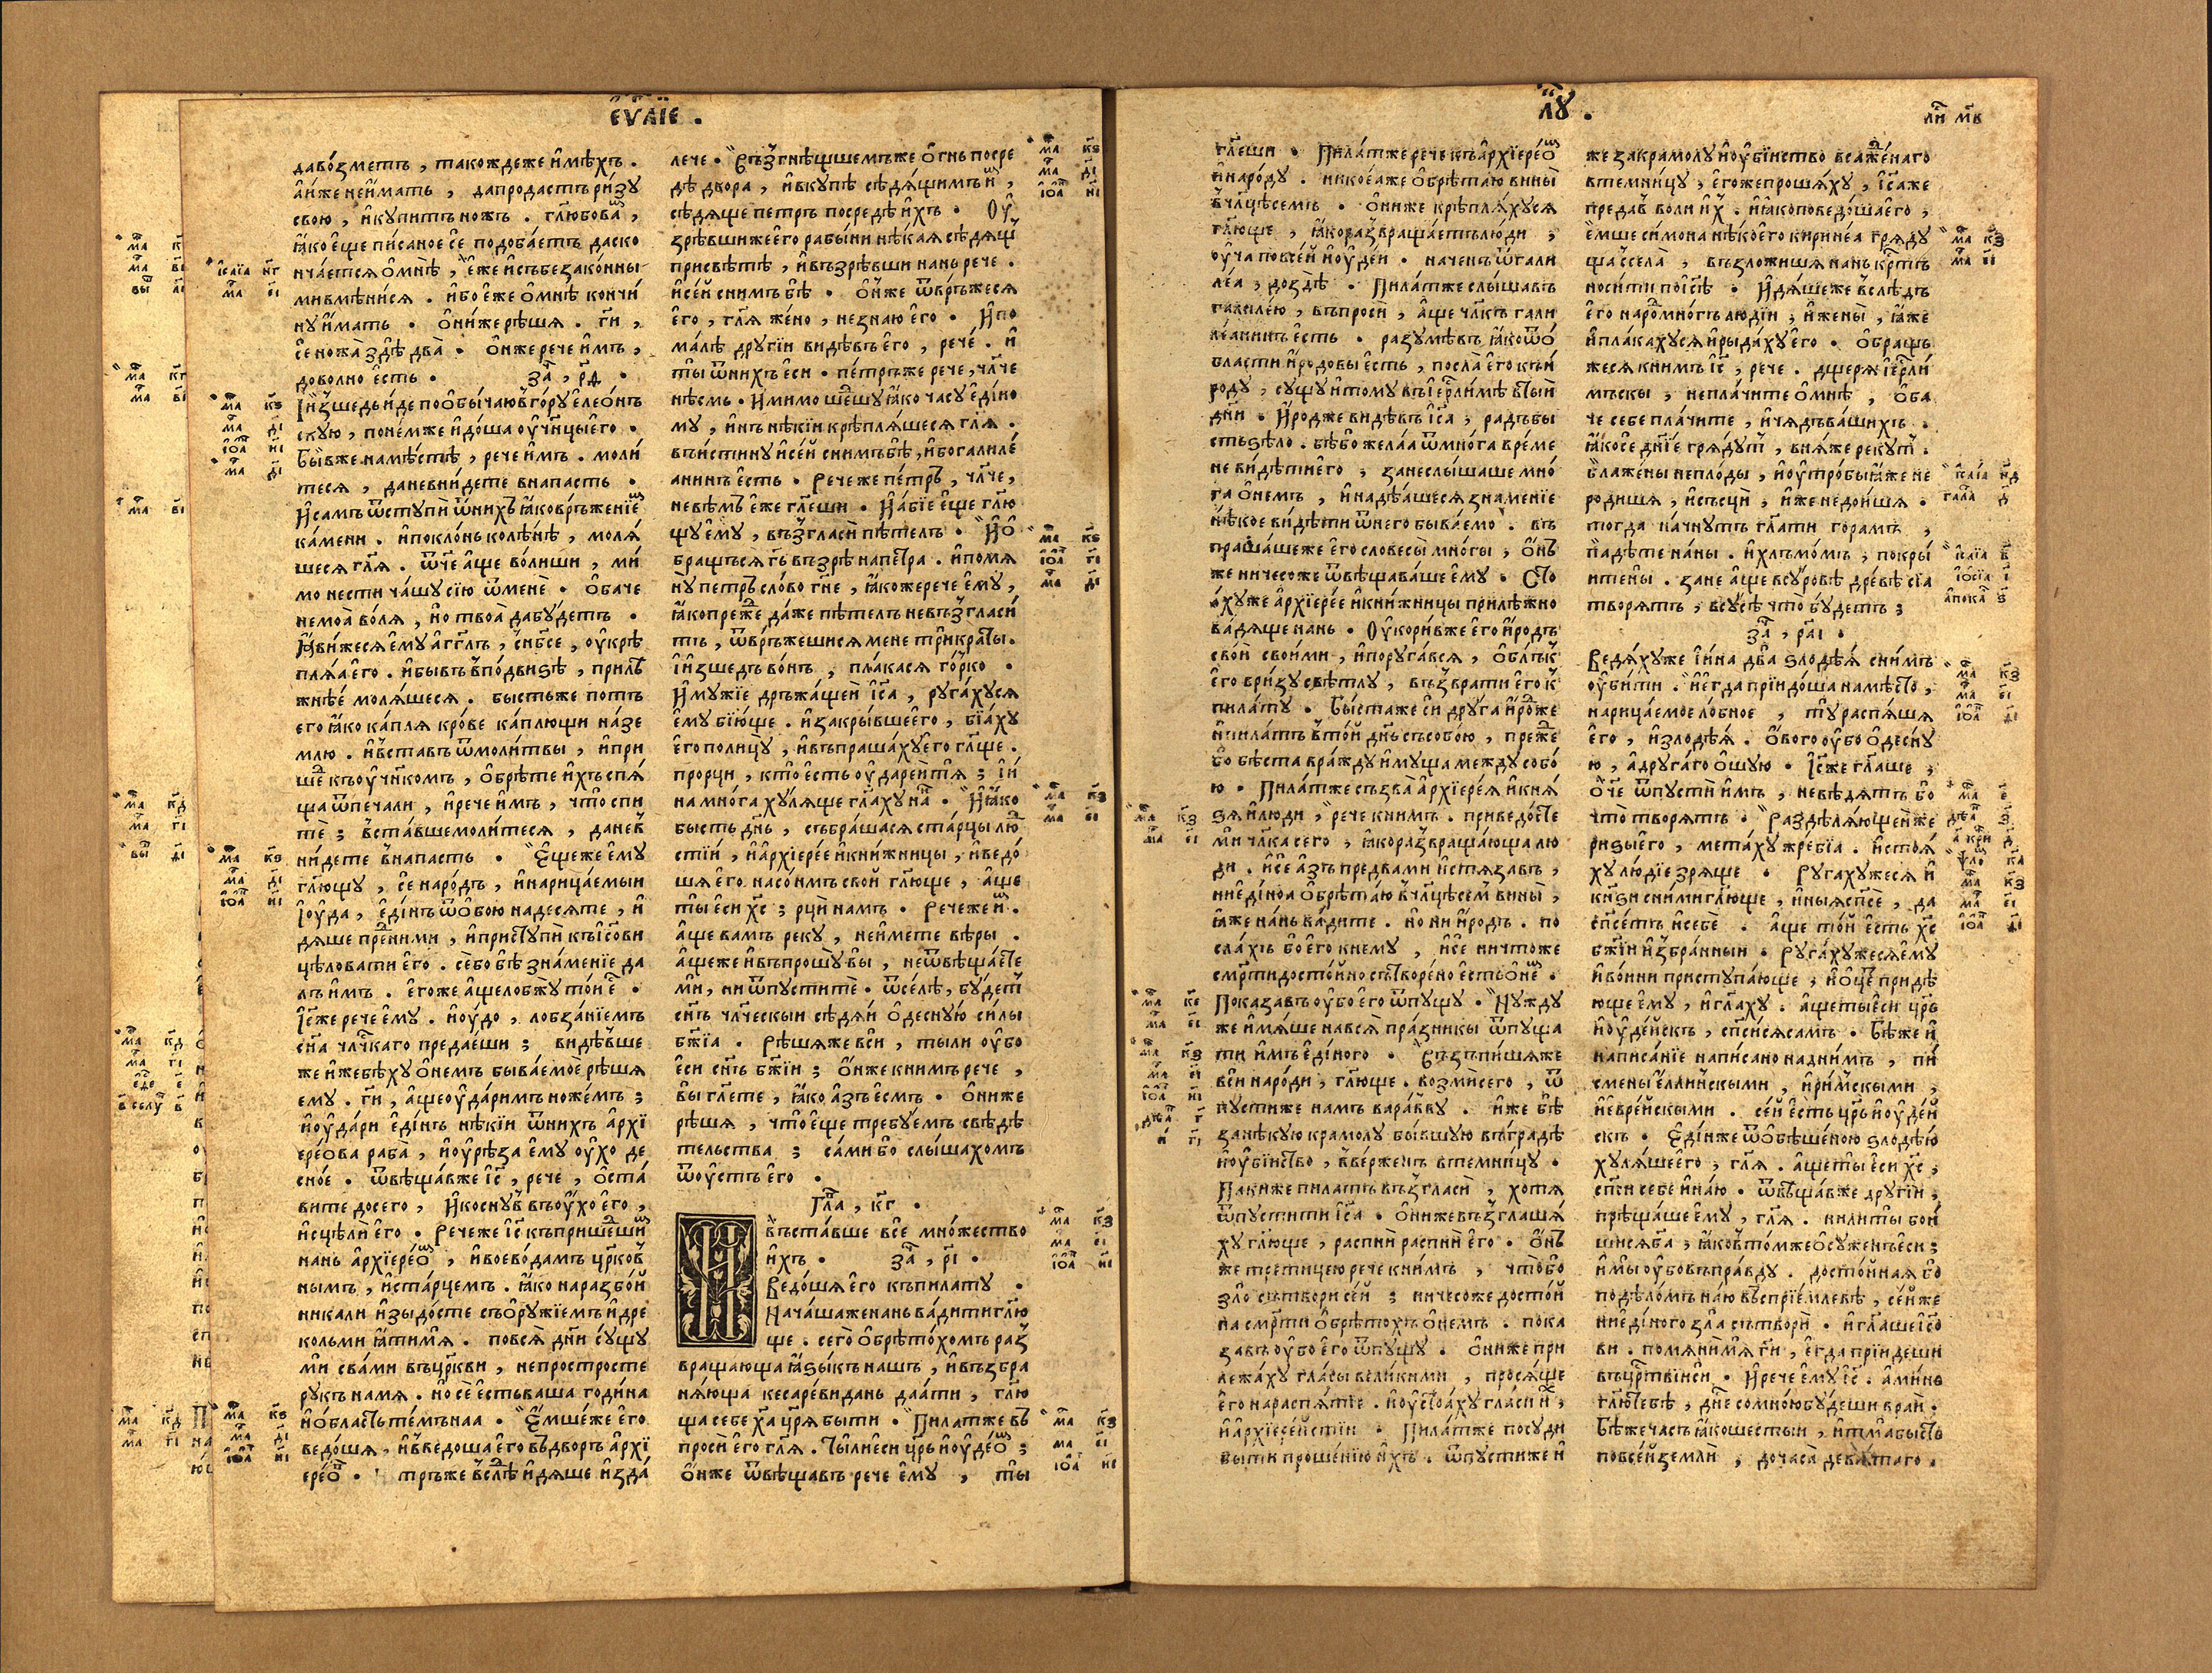 є҆ѵⷢ҇лїє .
даво́зметъ , такождеже и҆мѣ́хъ .
а҆и҆́же неи҆́мать , дапродастъ ри́зу
свою , и҆купитъ ножъ . гл҃юбова́ⷨ ,
ꙗ҆ко є҆ще пи́саное се̑ подоба́етъ даско
нча́ется ѻ҆мнѣ̀ , є҆́же и҆събезако́нны
мивмѣни́ся . и҆бо є҆́же ѻ҆мнѣ̀ кончи́
ну и҆́мать . ѻ҆ни́же рѣша̀ . гⷭ҇и ,
се̑ ножа̀ здѣ̀ два̀ . ѻ҆нже рече и҆мъ ,
доволно є҆сть . заⷱ҇ , р҃д .
И҆и҆зшедъ и҆́де пообы́чаю вго́ру є҆леѻ́нъ
скую , поне́мже и҆до́ша ѹ҆чн҃цы є҆го̀ .
Бы́вже намѣ́стѣ , рече и҆мъ . моли́
теся , даневни́дете внапасть .
И҆самъ ѿступѝ ѿнихъ ꙗ҆ковръже́нїеⷨ
ка́мени . и҆покло́нь колѣ́нѣ , моля́
шеся гл҃я . ѿч҃е а҆ще во́лиши , ми́
мо нести ча́шу сїю ѿменѐ . ѻ҆баче
немоа̀ во́ля , но твоа̀ дабу́детъ .
Ꙗ҆ви́жеся є҆му а҆гг҃лъ , снб҃се , ѹ҆крѣ
пля́а є҆го . и҆бы́въ впо́двиѕѣ , прилѣ́
жнѣе моля́шеся . бысть же потъ
его ꙗ҆ко ка́пля кро́ве ка́плющи на́зе
млю . и҆вста́въ ѿмоли́твы , и҆при
шеⷣ къѹ҆чн҃комъ , ѻ҆брѣ́те и҆́хъ спя́
ща ѿпечали , и҆рече и҆мъ , что̀ спи
тѐ ; вста́вше моли́теся , даневъ
ни́дете внапасть . Є҆́щеже є҆му
гл҃ющу , се̑ наро́дъ , и҆нарица́емыи
І҆ѹ҆да , є҆ди́нъ ѿѻ҆бою надесяте , и҆
дяше преⷣни́ми , и҆приступѝ къі҆с҃ови
цѣ́ловати є҆го . се̑бо бѣ̀ зна́менїе да
лъ и҆мъ . є҆гоже а҆ще лобжу то́и є҆ⷭ҇ .
І҆с҃же рече є҆му . і҆ю́до , лобза́нїемъ
сн҃а чл҃ч҃каго предае́ши ; ви́дѣвше
же и҆́жебѣ́ху ѻ҆немъ быва́емое рѣша
ему . гⷭ҇и , а҆ще ѹ҆да́римъ ноже́мъ ;
и҆ѹ҆да́ри є҆ди́нъ нѣ́кїи ѿнихъ а҆рхї
ере́ѻва раба̀ , и҆ѹ҆рѣ́за є҆му ѹ҆́хо де
сно́е . ѿвѣща́вже і҆с҃ , рече , ѻ҆ста́
вите до сего , и҆коснув въѹ҆́хо є҆го ,
и҆сцѣлѝ є҆го . Рече́же і҆с҃ къприше́шиⷨ
нань а҆рхїере́ѻⷨ , и҆воево́дамъ цр҃ков
нымъ , и҆ста́рцемъ . ꙗ҆ко на разбо́и
никали и҆зыдо́сте съѻ҆ру́жїемъ и҆дре
кольми ꙗ҆тимя̀ . повся̀ дн҃и су́щу
ми̑ сва́ми въцр҃кви , непростро́сте
ру́къ намя . но се̑ є҆сть ваша годи́на
и҆ѻ҆бласть те́мънаа . Є҆́мше́же є҆го
ведо́ша , и҆вве́доша є҆го въдворъ а҆рхї
ере́ѻⷡ . Петръже вслѣ̀ⷣ и҆дяше и҆зда́
лече . Възгнѣ́щшемъже ѻ҆́гнь посре
дѣ̀ двора , и҆вку́пѣ сѣдя́щимъ иⷨ ,
сѣ́дяше петръ посредѣ̀ и҆́хъ . Ѹ҆
зрѣ́вшиже є҆го рабы́ни нѣ́кая сѣдя́щ
присвѣ́тѣ , и҆възрѣ́вши нань рече .
и҆се́и снимъ бѣ̀ . ѻ҆нже ѿвръ́жеся
є҆го , гл҃я же́но , незна́ю є҆го . И҆по
ма́лѣ дру́гїи ви́дѣвъ є҆го , рече́ . и҆
ты̑ ѿнихъ є҆си . пе́тръже рече , чл҃че
нѣ́смь . И҆мимо ше́ⷣшу ꙗ҆ко часу̀ є҆ди́но
му , и҆нъ нѣ́кїи крѣпля́шеся гл҃я .
въи́стину и҆се́и снимъ бѣ , и҆бо галиле́
анинъ є҆сть . Рече же пе́тръ , чл҃че ,
невѣ́мъ еже гл҃еши . И҆а́бїе є҆ще гл҃ю
щу є҆му , възгласѝ пѣ́телъ . И҆ѻ҆
бращься гⷭ҇ь възрѣ̀ напе́тра . и҆помя
ну̀ петръ сло́во гн҃е , ꙗ҆коже рече є҆му ,
ꙗ҆копреⷤе да́же пѣ́телъ невъзгласи́
тъ , ѿвръ́жешися мене трикра́ты .
і҆и҆зше́дъ во́нъ , пла́кася го́рко .
И҆му́жїе дръжа́щеи і҆с҃а , руга́хуся
є҆му бїю́ще . и҆закры́вше є҆го , бїа́ху
є҆го по лицу̀ , и҆въпраша́ху є҆го гл҃ще .
прорци , кто̀ є҆сть ѹ҆даре́и тя̀ ; і҆и҆
на мно́га ху́ляще гл҃аху на́ⷩ . И҆ꙗ҆ко
бы́сть дн҃ь , събра́шася ста́рцы лю́ⷣ
стїи , и҆а҆рхїере́е и҆кни́жницы , и҆ведо́
шя є҆го насо́нмъ сво́и гл҃юще , а҆ще
ты̑ еси хс҃ ; рци́ намъ . Рече́же и́ⷨ .
а҆ще вамъ реку , неи҆́мете вѣры .
а҆щеже и҆въпрошу̀ вы̀ , неѿвѣща́ете
ми̑ , ни ѿпустите . ѿсе́лѣ , бу́детъ
сн҃ъ чл҃ческыи сѣдя́и ѻ҆десну́ю си́лы
бж҃їа . Рѣшяже вси̑ , ты ли ѹ҆бо
є҆си сн҃ъ бж҃їи ; ѻ҆нже к нимъ рече ,
вы̑ гл҃ете , ꙗ҆ко а҆зъ є҆смъ . ѻ҆ниже
рѣшя , что̀ є҆ще требуемъ свѣдѣ
тельства ; са́ми бо слы́шахомъ
ѿѹ҆стъ є҆го .
Глⷡ҇а , к҃г .
И҆въста́вше все̑ мно́жество
и҆́хъ . заⷱ҇ , р҃і .
ведо́шя є҆го къ пилату .
Нача́шаже нань ва́дити гл҃ю
ще . сего̀ ѻ҆брѣто́хомъ раз
враща́юща ꙗ҆зы́къ нашъ , и҆възбра
ня́юща кесаре́ви дань даа́ти , гл҃ю
ща себе х҃а цр҃я бы́ти . Пилатже въ
просѝ є҆го гл҃я . Ты́ ли еси цр҃ь і҆ѹ҆де́ѻⷨ ;
ѻ҆нже ѿвѣща́въ рече є҆му , ты̑
лѹⷦ҇ .
лиⷭ҇ м҃в
гл҃еши . Пилатже рече къ а҆рхїере́ѻⷨ
и҆наро́ду . никое́аже ѻ҆брѣта́ю вины̀
въчл҃цѣ семъ . ѻ҆ниже крѣпля́хуся
гл҃юще , ꙗ҆ко развраща́етъ лю́ди ,
ѹ҆ча повсе́и і҆ѹ҆де́и . наченъ ѿгали
ле́а , до здѣ̀ . Пилатже слы́шавъ
галиле́ю , въпросѝ , а҆ще чл҃къ гали
ле́анинъ є҆сть . разумѣ́въ ꙗ҆ко ѿѻ҆́
бласти и҆́родовы є҆сть , посла̀ є҆го къ и҆́
роду , су́щу и҆тому въ і҆ер҃ли́мѣ в ты́и
дн҃и . И҆́родже ви́дѣвъ і҆с҃а , ра́дъ бы
сть ѕѣло . бѣ́бо желаа ѿмно́га вре́ме
не ви́дѣти є҆го ; зане слы́шаше мно́
га ѻ҆немъ , и҆надѣ́ашеся зна́менїе
нѣ́кое ви́дѣти ѿнего быва́емо . въ
праша́шеже є҆го словесы̀ мно́гы , ѻ҆нъ
же ничесоже ѿвѣщава́ше є҆му . Сто
а́хуже а҆рхїере́е и҆кни́жницы прилѣ́жно
ва́дяще нань . Ѹ҆кори́вже є҆го и҆́родъ
сво́и сво́ими , и҆поруга́вся , ѻ҆блъ́к
є҆го вризу свѣ́тлу , възврати є҆го к
пила́ту . Бы́стаже си друга и҆́роⷣже
и҆пила́тъ вто́и дн҃ь съсобо́ю , преⷤе
бо бѣста вражду и҆му́ща между собо́
ю . Пила́тже съзва̀ а҆рхїере́я и҆кня
ѕя и҆лю́ди , рече к нимъ . приведо́сте
ми̑ чл҃ка сего , ꙗ҆ко развраща́юща лю
ди . и҆се̑ а҆зъ пред вами и҆стяза́въ ,
ни є҆ди́ноа ѻ҆брѣта́ю въчл҃цѣ сем вины̀ ,
ꙗ҆же на́нь ва́дите . но ни и҆́родъ . по
сла́хъ бо є҆го к нему , и҆се̑ ничто́же
см҃рти досто́йно сътворе́но є҆сть ѻ҆не́ⷨ .
Показа́въ ѹ҆бо є҆го ѿпущу . Ну́жду
же и҆мя́ше нався̀ пра́здникы ѿпуща
ти и҆мъ є҆ди́ного . Възъпи́шяже
вси̑ наро́ди , гл҃юще . возми̑ сего , ѿ
пустиже намъ вара́вву . и҆́же бѣ̀
за нѣ́кую крамолу бы́вшую въгра́дѣ
и҆ѹ҆бїи́ство , вве́рженъ втемни́цу .
Па́киже пила́тъ възгласѝ , хотя
ѿпустити і҆с҃а . ѻ҆ниже възглаша́
ху гл҃юще , распнѝ распнѝ є҆го . ѻ҆нъ
же третицею рече к нимъ , что̀ бо
зло̀ сътвори се́и ; ничесоже досто́й
на см҃рти ѻ҆брѣто́хъ ѻ҆немъ . пока
завъ ѹ҆бо є҆го ѿпущу . ѻ҆ниже при
лежа́ху гла́сы вели́кими , прося́ще
є҆го на распя́тїе . и҆ѹ҆стоа́ху гла́си и҆́ⷯ ,
и҆а҆рхїере́йстїи . Пила́тже посуди
быти проше́нїю и҆́хъ . ѿпустиже и҆
же за крамолу и҆ѹ҆бїи́ство всаⷤе́наго
втемни́цу , є҆го́же прошя́ху , і҆с҃аже
преда́в воли и҆́х . и҆ꙗ҆ко поведо́ша є҆го ,
є҆́мше си́мона нѣ́коего киринеа гряду
ща съсела̀ , възложи́шя нань кр҃тъ
носи́ти по і҆с҃ѣ . И҆дя́шеже вслѣдъ
є҆го наро́ⷣ мно́гъ лю́дїи , и҆жены̀ , ꙗ҆́же
и҆плака́хуся и҆рыда́ху є҆го . Ѻ҆бращь
жеся к нимъ і҆с҃ , рече . дщеря і҆ер҃ли́
мъскы , непла́чите ѻ҆мнѣ̀ , ѻ҆ба
че себе пла́чите , и҆ча́дъ ва́шихъ .
ꙗ҆ко се̑ дн҃їе гряду́т , вня́же реку́т .
блаже́ны непло́ды , и҆ѹ҆тро́бы ꙗ҆́же не
родишя , и҆съсцѝ , и҆́же недои́шя .
тогда начнутъ гл҃ати горамъ ,
пади́те на́ны . и҆хлъмо́мъ , покры́
ите́ны . зане а҆ще всу́ровѣ дре́вѣ сїа
творятъ , всу́сѣ что̀ бу́детъ ;
заⷱ҇ , р҃аі .
Ведя́хуже і҆и҆на два̀ ѕлодѣ́я снимъ
ѹ҆би́ти . и҆є҆гда прїидо́ша намѣсто ,
нарица́емое ло́бное , ту̀ распя́шя
є҆го , и҆злодѣ́я . ѻ҆́вого ѹ҆бо ѻ҆десну́
ю , а҆друга́го ѻ҆шу́ю . І҆с҃же гл҃аше ,
ѻ҆́ч҃е ѿпусти и҆мъ , невѣ́дятъ бо
что̀ творятъ . Раздѣля́ющеиже
ри́зы є҆го , мета́ху жре́бїа . и҆стоя́
ху лю́дїе зряще . Руга́хужеся и҆
кня́ѕи сними гл҃юще , и҆ны́я сп҃се , да
сп҃се́тъ и҆себѐ . а҆ще то́й є҆сть хс҃
бж҃їи и҆збра́нныи . Руга́хужеся є҆му
и҆во́ини приступа́юще , и҆ѻ҆́це́т приде
юще є҆му , и҆гл҃аху . а҆ще ты є҆си цр҃ь
і҆ѹ҆де́йскъ , сп҃си́ся самъ . Бѣ́же и҆
написа́нїе написано над нимъ , пи́
смены є҆ллинскыми , и҆ри́мскыми ,
и҆є҆вре́йскыми . се́й є҆сть цр҃ь і҆ѹ҆де́й
скъ . Є҆ди́нже ѿѻ҆бѣ́шеною ѕлодѣ́ю
ху́ляше є҆го , гл҃я . а҆ще ты̀ є҆си хс҃ ,
сп҃си себе и҆на́ю . ѿвѣща́вже дру́гїи ,
прѣща́ше є҆му , гл҃я . ни ли ты̀ бои́
шися б҃а ; ꙗ҆ко втомже ѻ҆суженъ є҆си ;
и҆мы ѹ҆бо въпра́вду . досто́йная бо
по дѣло́мъ наю въспрїе́млевѣ , се́йже
ни є҆ди́ного зла̀ сътворѝ . и҆гл҃аше і҆с҃о
ви . помяни́ мя гⷭ҇и , є҆гда прїидеши
въцр҃твїи си̑ . И҆рече є҆му і҆с҃ . а҆ми́нь
гл҃ю тебѣ̀ , дн҃е со мно́ю бу́деши враи́ .
Бѣ́же часъ ꙗ҆ко шестыи , и҆тма̀ бысть
по всеи́ земли̑ , до часа̀ девя́таго .